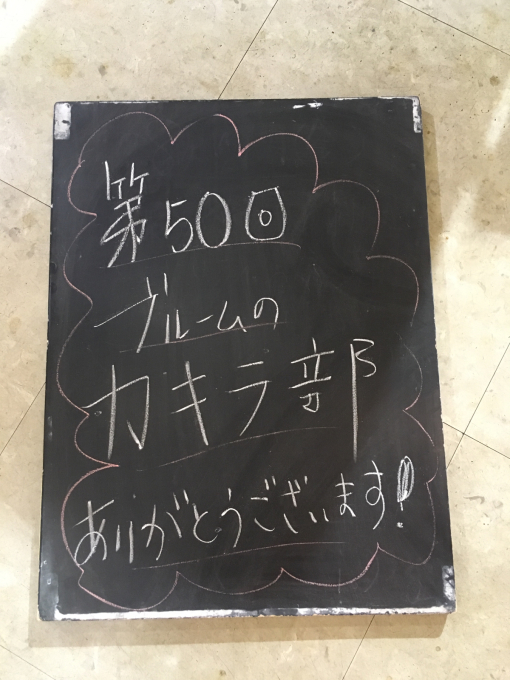 第50回
ブルームの
カキラ部
ありがとうございます!